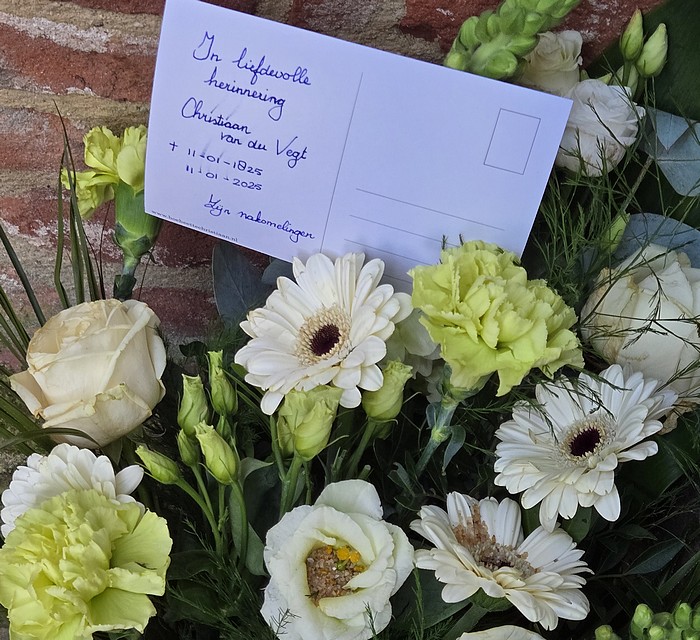 In liefdevolle
herinnering
Christiaan
van der Vegt
+ 11-01-1825
11-01-2025
Zijn nakomelingen